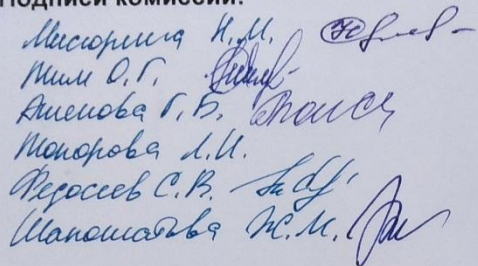 Подписи комиссии:
Мисюрина Н. М.
Тим О. Г.
Ашенова Г. Б.
Токорова Л. И.
Федосеев С. В.
Ж. М.